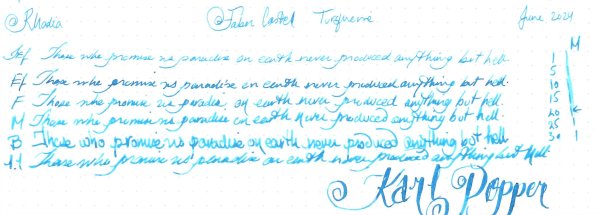 @Rhodia @Faber Castel Turquoise June 2024
M
Ef Those who promise us paradise on earth never produced anything but hell. 1
Ef Those who promise us paradise on earth never produced anything but hell. 5
F Those who promise us paradise on earth never produced anything but hell. 10
M Those who promise us paradise on earth never produced anything but hell. 15
20
B Those who promise us paradise on earth never produced anything but hell. 25
30
1.1 Those who promise us paradise on earth never produced anything but hell.
@ Karl Popper